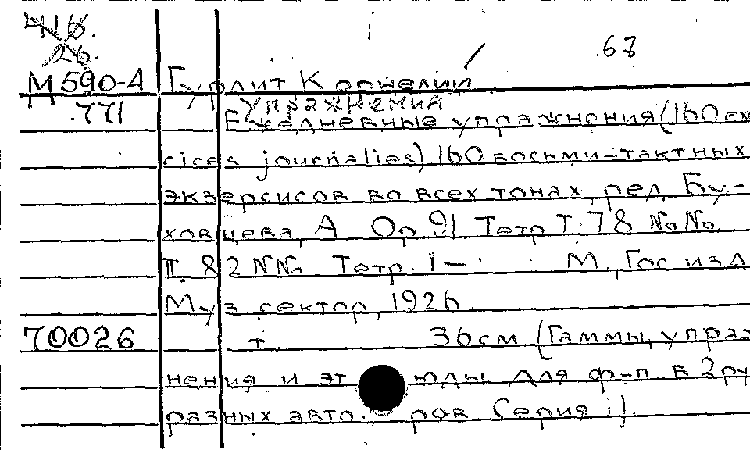 416.
26.
67
М590-4 Гурлит Корнелий
.771 Упражнения
Ежедневные упражнения (160 ex
cices journalies) 160 восьми-тактных
экзерсисов во всех тонах, ред. Бу-
ховцева, А Ор 91 Тетр Т. 78 №№
II 82 NNo Тетр. 1– М., Гос изд
Муз сектор, 1926
70026 т 36см (Гаммы, упраж
нения и этюды для ф-п в 2 ру
разных авторов Серия 1)